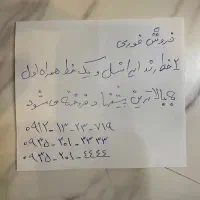 فروش فوری
۲ خط رند ایرانسل و یک خط همراه اول
به بالاترین پیشنهاد فروخته می شود
۰۹۱۲-۱۳-۲۳-۷۱۹
۰۹۳۵-۲۰۱-۳۳۳۳
۰۹۳۵-۲۰۱-۴۴۴۴